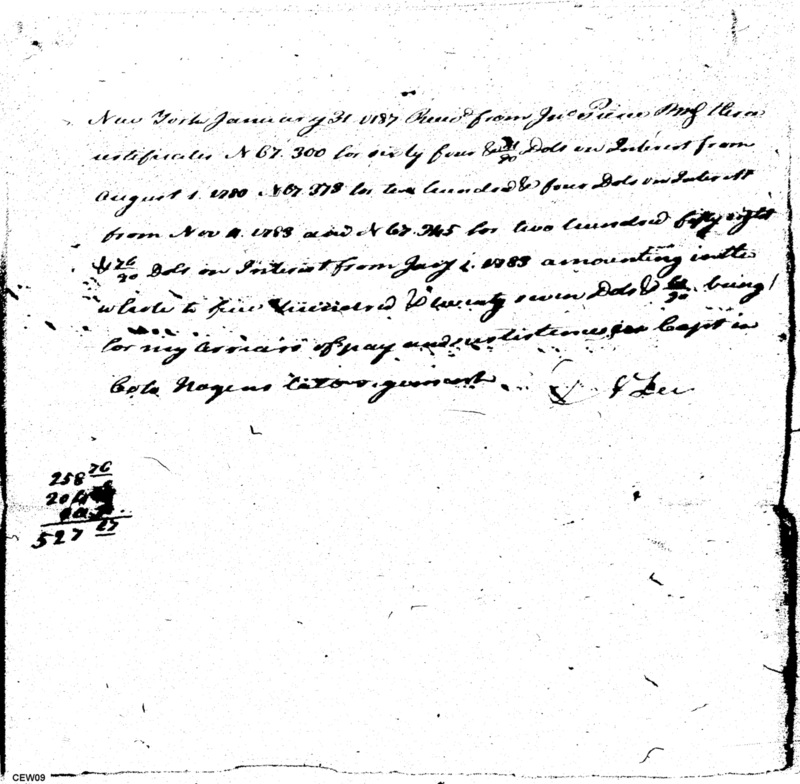 New York January 31. 1787 Recd from Jno Pierce three
certificates N 67.300 for sixty four & /90 Dols on Interest from
August 1. 1780 N 67.373 for two hundred & four Dols on Interest
from Nov 4. 1783 and N 67.245 for two hundred fifty eight
& 76/90 Dols on Interest from Jany 1. 1783 amounting in the
whole to five hundred & twenty seven Dols & /90 being
for my arrears of pay and subsistence as Capt in
Cols Hazens late regiment
Lee
258 76
204
527 27
CEW09